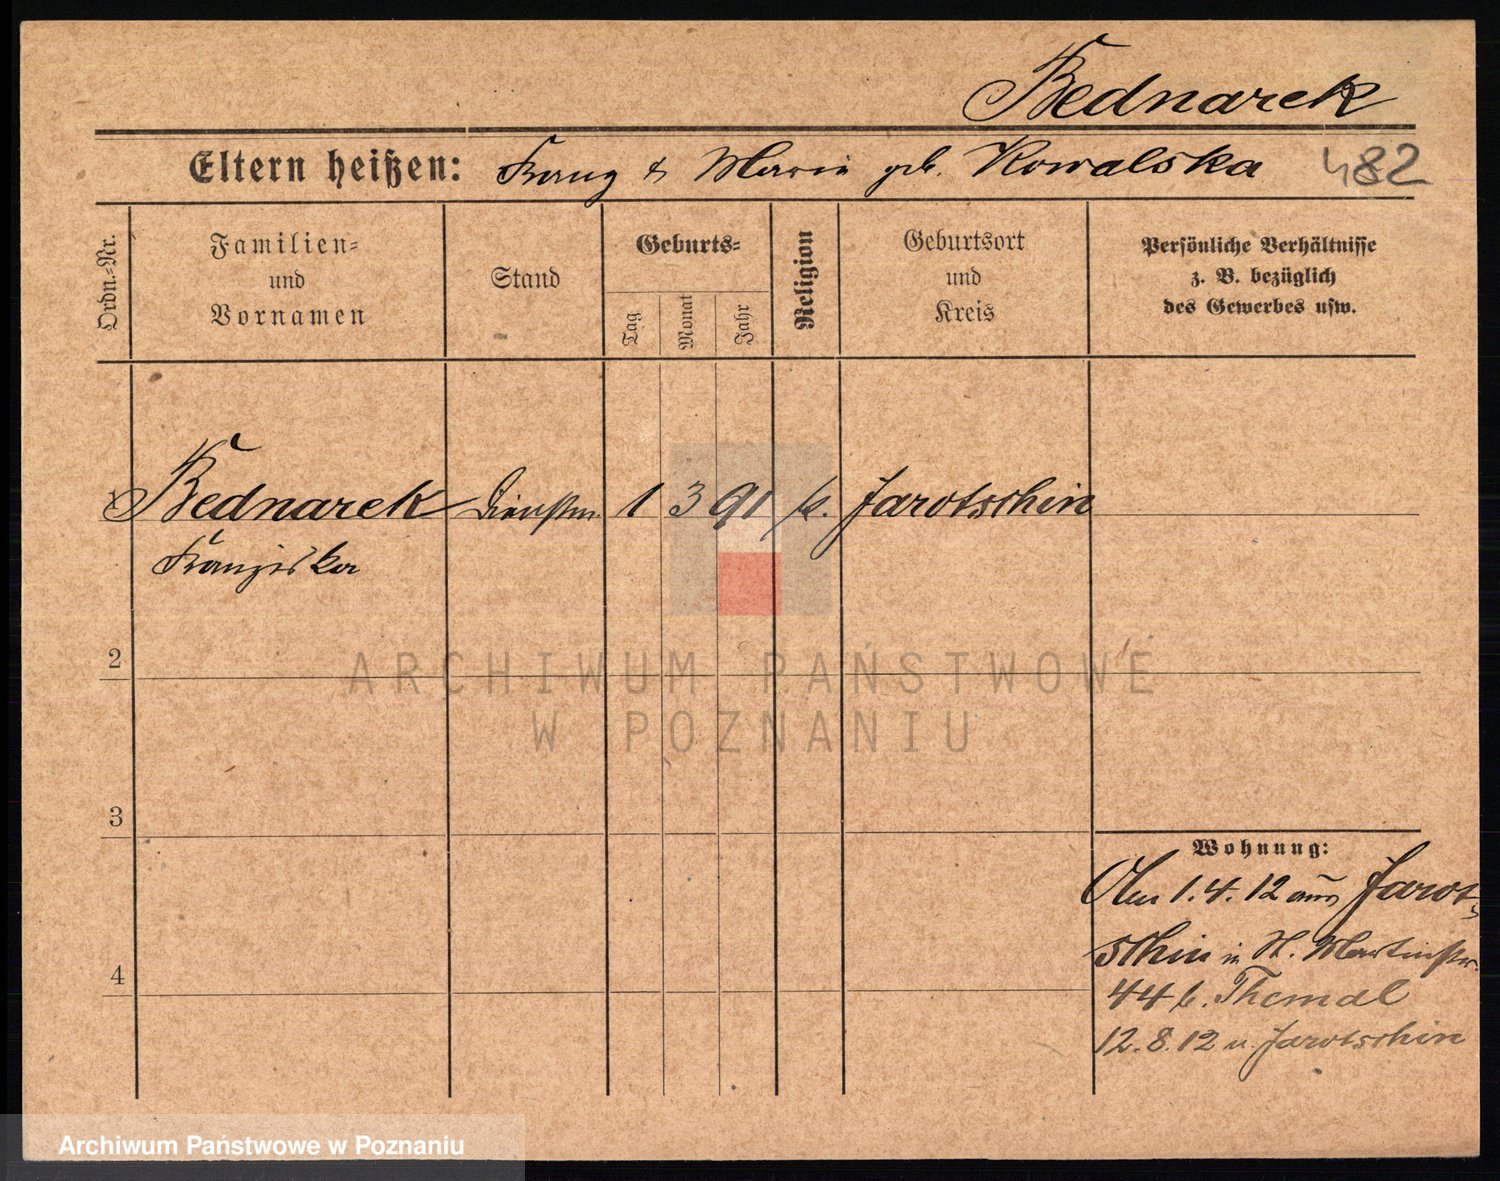 Bednarek
Eltern heißen: Franz & Maria geb. Kowalska 482
Ordn.-Nr.
Familien-
und
Vornamen
Stand
Geburts-
Tag
Monat
Jahr
Religion
Geburtsort
und
Kreis
Persönliche Verhältnisse
z. B. bezüglich
des Gewerbes usw.
1 Bednarek Dienstm. 1 3 91 k. Jarotschin
Franziska
2
ARCHIWUM PAŃSTWOWE
W POZNANIU
3
Wohnung:
1.4.12 aus Jarot-
schin in St. Martinstr.
44 b. Themal
12.8.12 n. Jarotschin
4
Archiwum Państwowe w Poznaniu